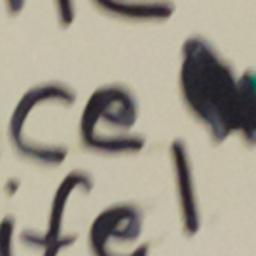 ce
ife!